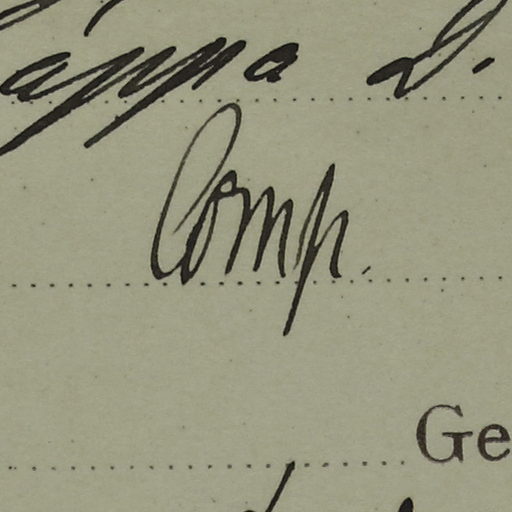 appa D.
Comp.
Ge